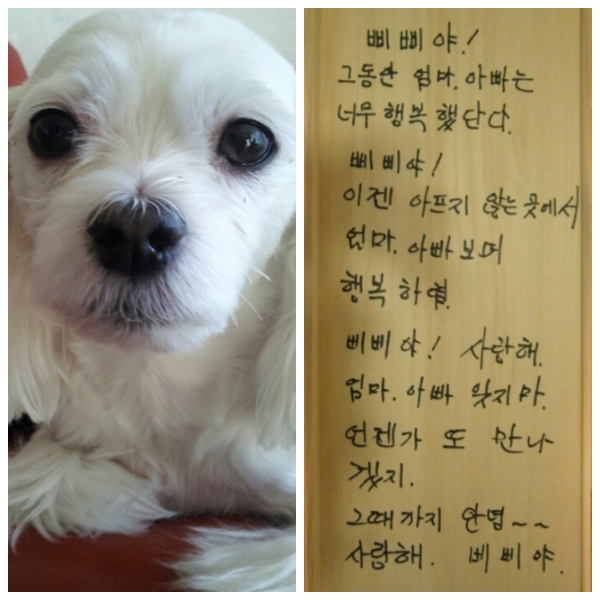 삐삐야!
그동안 엄마.아빠는
너무 행복했단다.
삐삐야!
이젠 아프지 않는 곳에서
엄마.아빠 보며
행복하렴.
삐삐야! 사랑해.
엄마.아빠 잊지마.
언젠가 또 만나
겠지.
그때까지 안녕~~
사랑해. 삐삐야.